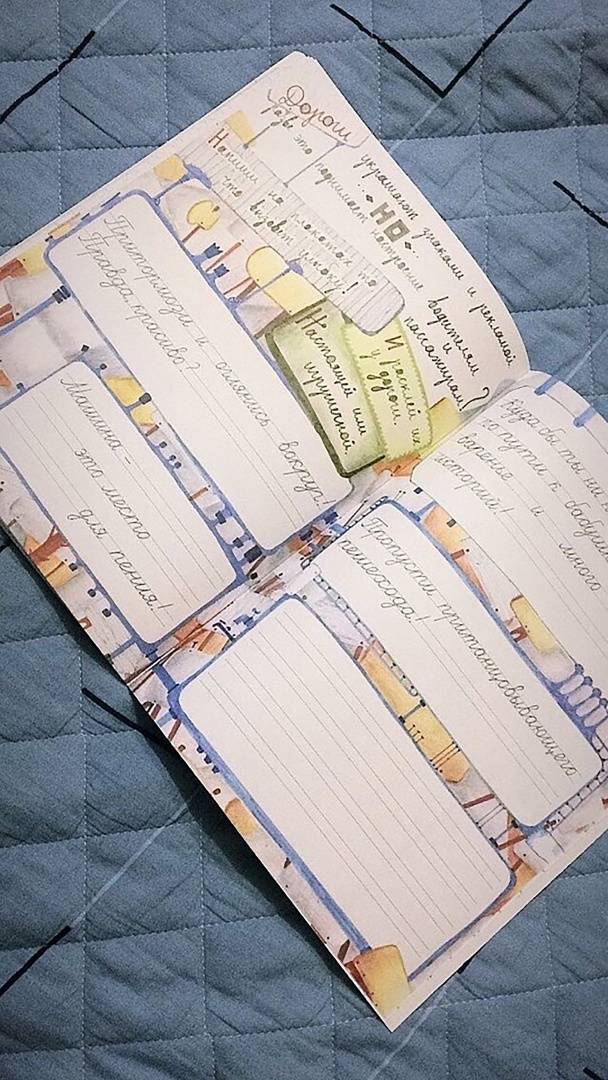 Дороги
украшают знаками и рекламой
•НО•
разве это поднимает настроение водителям
и
пассажирам?
Напиши на плакатах то,
что вызовет улыбку!
И расклей их
у дороги.
Настоящей или
игрушечной.
Притормози и оглянись вокруг!
Правда, красиво?
Машина –
это место
для пения!
Куда бы ты ни
по пути к бабушке
и много
историй!
Пропусти пританцовывающего
пешехода!